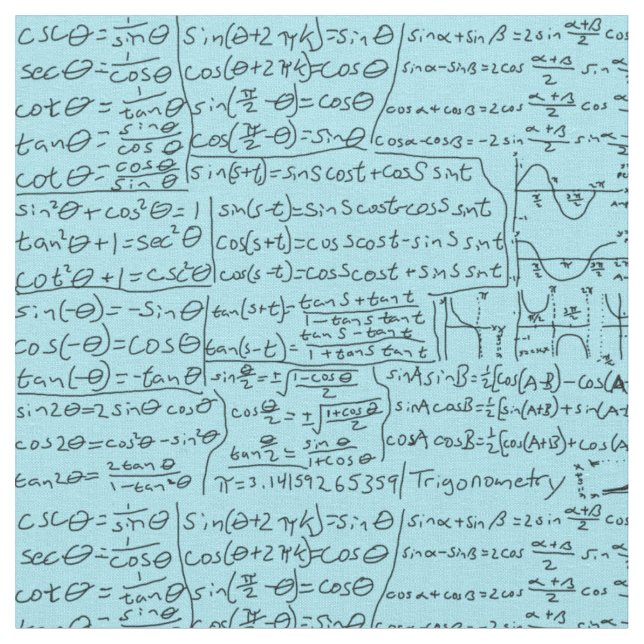 cscθ = 1/sinθ
secθ = 1/cosθ
cotθ = 1/tanθ
tanθ = sinθ/cosθ
cotθ = cosθ/sinθ
sin(θ+2πk)=sinθ
cos(θ+2πk)=cosθ
sin(π/2 -θ)=cosθ
cos(π/2-θ)=sinθ
sinα+sinβ=2sin α+β/2 cos
sinα-sinβ=2cos α+β/2 sin
cosα+cosβ=2cos α+β/2 cos
cosα-cosβ=-2sin α+β/2 sin
sin(s+t)=sinscost+cosssint
sin²θ+cos²θ=1
tan²θ+1=sec²θ
cot²θ+1=csc²θ
sin(s-t)=sinscost-cosssint
cos(s+t)=cosscost-sinssint
cos(s-t)=cosscost+sinssint
sin(-θ)=-sinθ
cos(-θ)=cosθ
tan(-θ)=-tanθ
tan(s+t)= tans+tant/1-tanstant
tan(s-t)= tans-tant/1+tanstant
sin2θ=2sinθcosθ
cos2θ=cos²θ-sin²θ
tan2θ= 2tanθ/1-tan²θ
sin θ/2 =±√1-cosθ/2
cos θ/2 =±√1+cosθ/2
tan θ/2 = sinθ/1+cosθ
sinAsinB=1/2[cos(A-B)-cos(A
sinAcosB=1/2[sin(A+B)+sin(A
cosAcosB=1/2[cos(A+B)+cos(A
π=3.14159265359
Trigonometry
cscθ = 1/sinθ
secθ = 1/cosθ
cotθ = 1/tanθ
sinθ
sin(θ+2πk)=sinθ
cos(θ+2πk)=cosθ
sin(π/2 -θ)=cosθ
sinα+sinβ=2sin α+β/2 cos
sinα-sinβ=2cos α+β/2 sin
cosα+cosβ=2cos α+β/2 cos
α+β